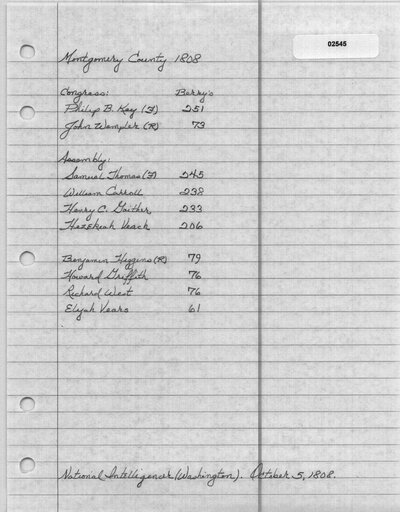 02545
Montgomery County 1808
Congress: Berry's
Philip B. Key (F) 251
John Wampler (R) 73
Assembly:
Samuel Thomas (F) 245
William Carroll 238
Henry C. Gaither 233
Hezekiah Veach 206
Benjamin Higgins (R) 79
Howard Griffith 76
Richard West 76
Elijah Vears 61
National Intelligencer (Washington). October 5, 1808.